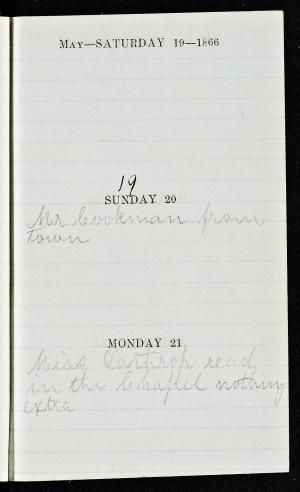 May—SATURDAY 19—1866
19
SUNDAY 20
Mr Cookman from
town
MONDAY 21
Miss Lathrop read
in the Chapel nothing
extra